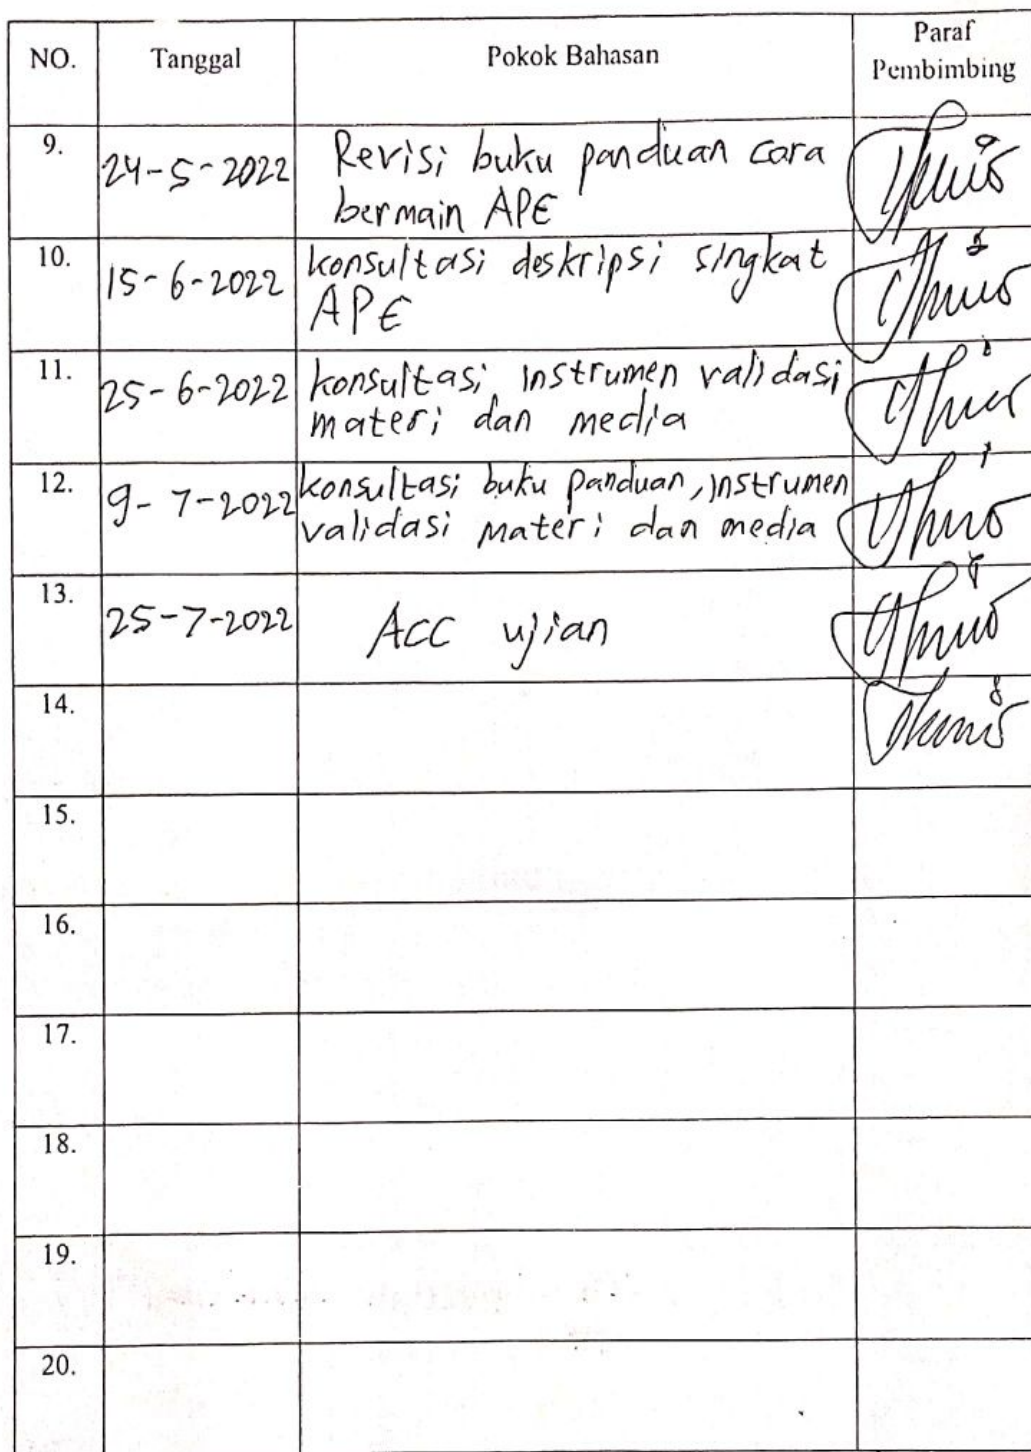 NO. Tanggal Pokok Bahasan Paraf
Pembimbing
9. 24-5-2022 Revisi buku panduan cara
bermain APE
10. 15-6-2022 konsultasi deskripsi singkat
APE
11. 25-6-2022 konsultasi instrumen validasi
materi dan media
12. 9-7-2022 konsultasi buku panduan, instrumen
validasi materi dan media
13. 25-7-2022 ACC ujian
14.
15.
16.
17.
18.
19.
20.